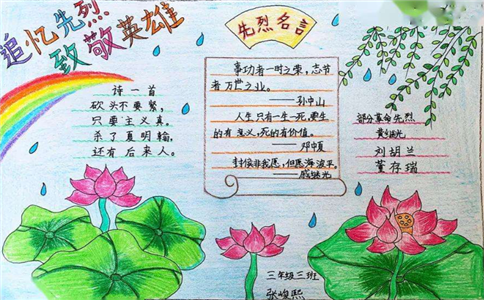 追忆先烈
致敬英雄
诗一首
砍头不要紧,
只要主义真。
杀了夏明翰,
还有后来人。
先烈名言
事功者一时之荣,志节
者万世之业。
——孙中山
人生只一生一死,要生
的有意义,死的有价值。
——邓中夏
封侯非我愿,但愿海波平。
——戚继光
部分革命先烈
黄继光
刘胡兰
董存瑞
三年级三班
张峻熙